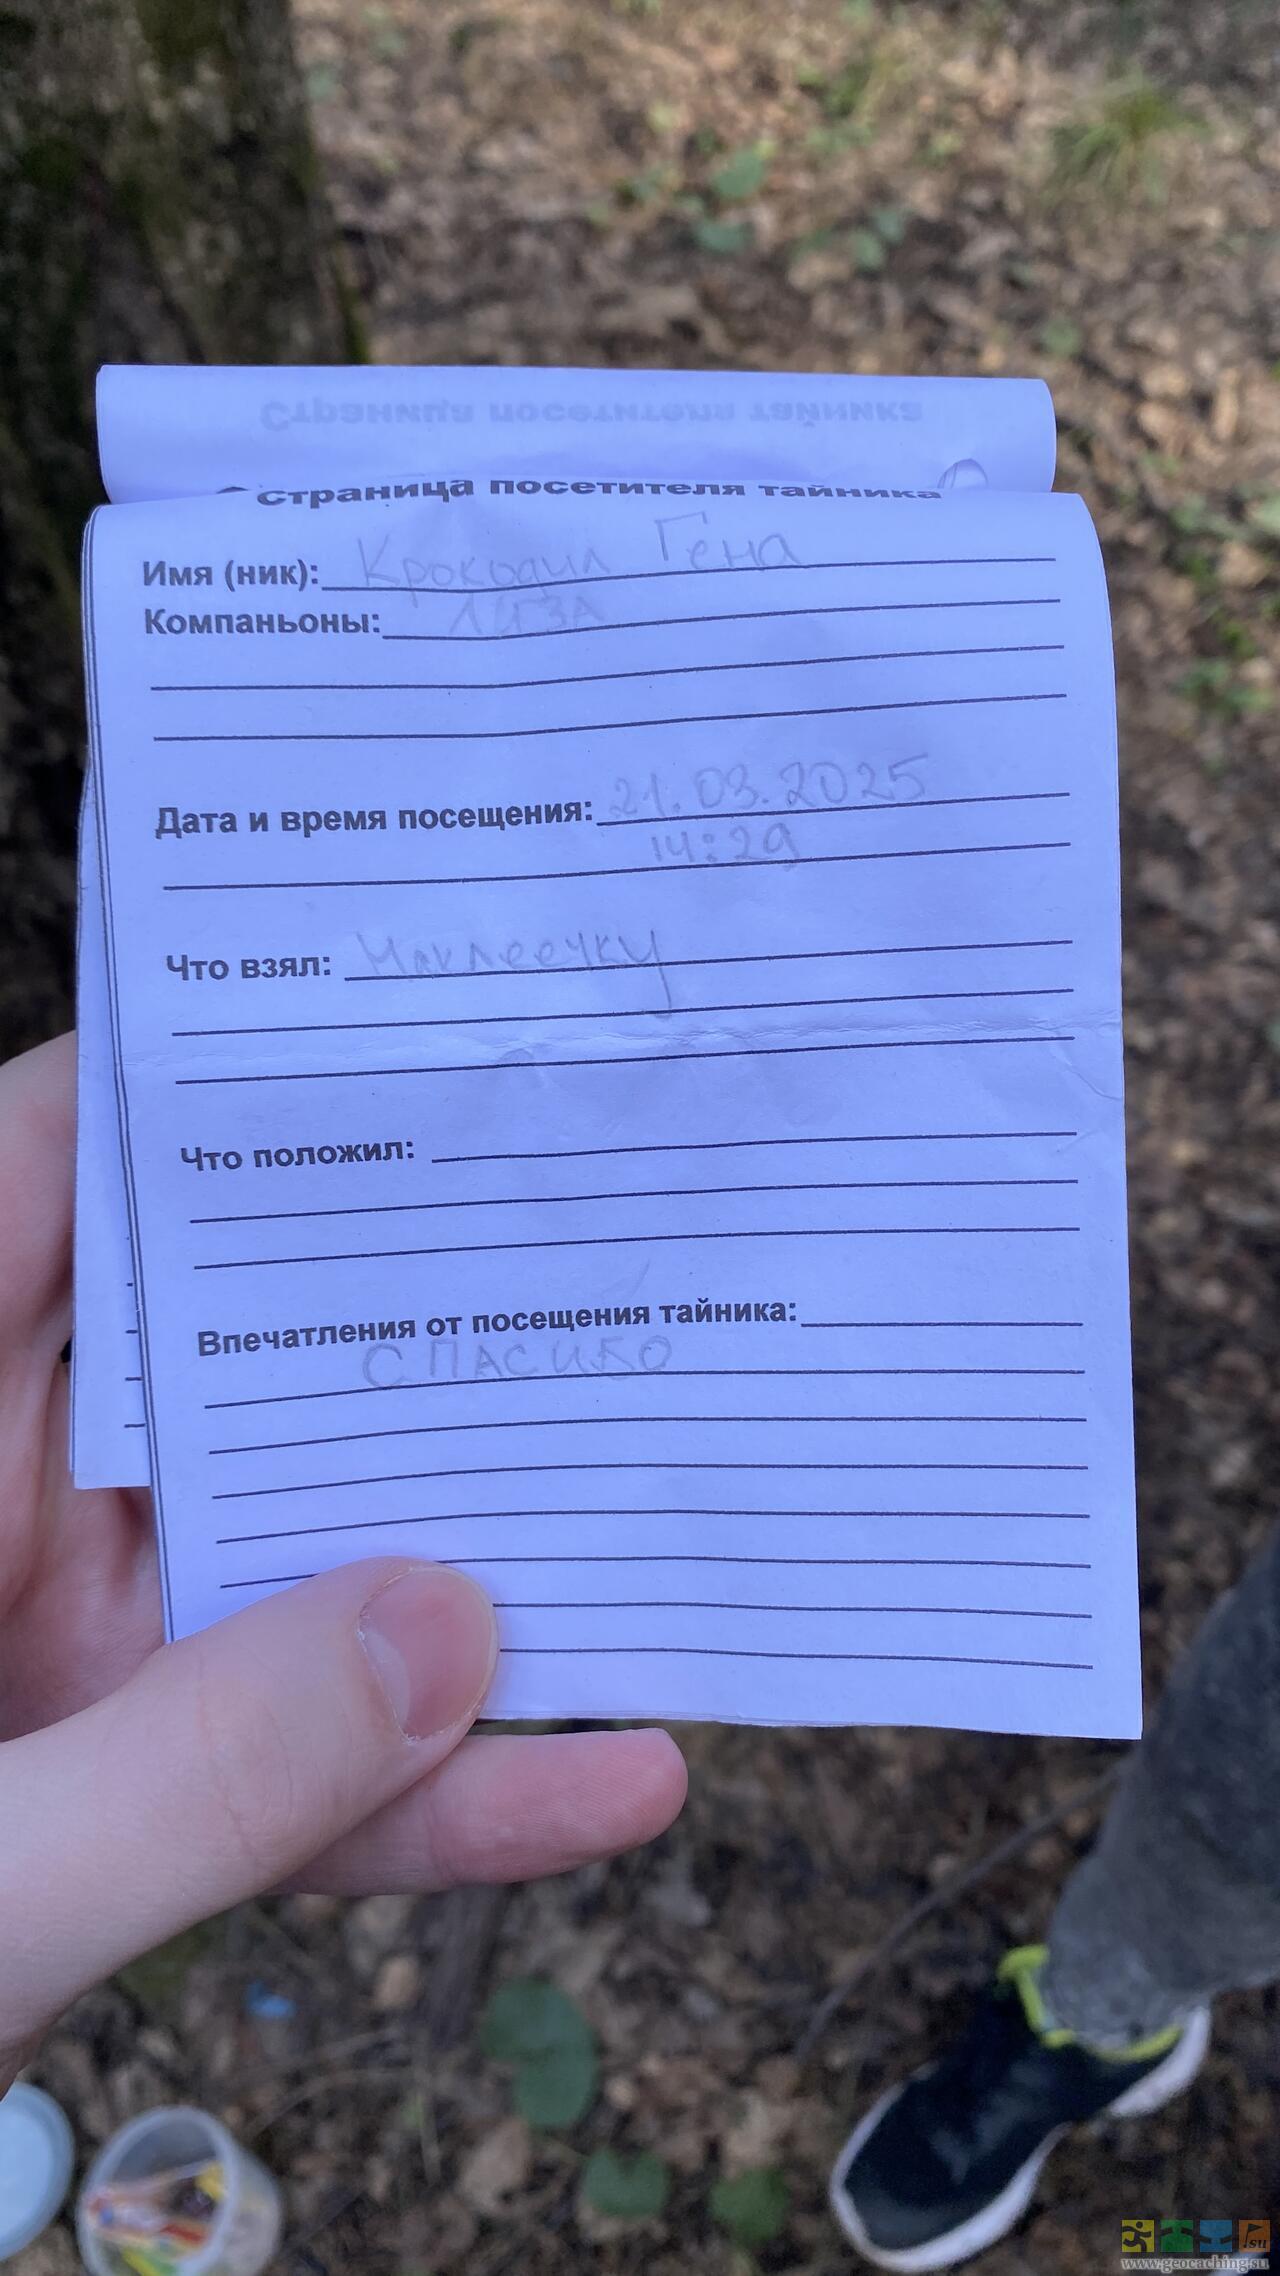 Страница посетителя тайника
Страница посетителя тайника
Имя (ник): Крокодил Гена
Компаньоны: ЛИЗА
Дата и время посещения: 21.03.2025
14:29
Что взял: Наклеечку
Что положил:
Впечатления от посещения тайника:
СПАСИБО
.su
www.geocaching.su